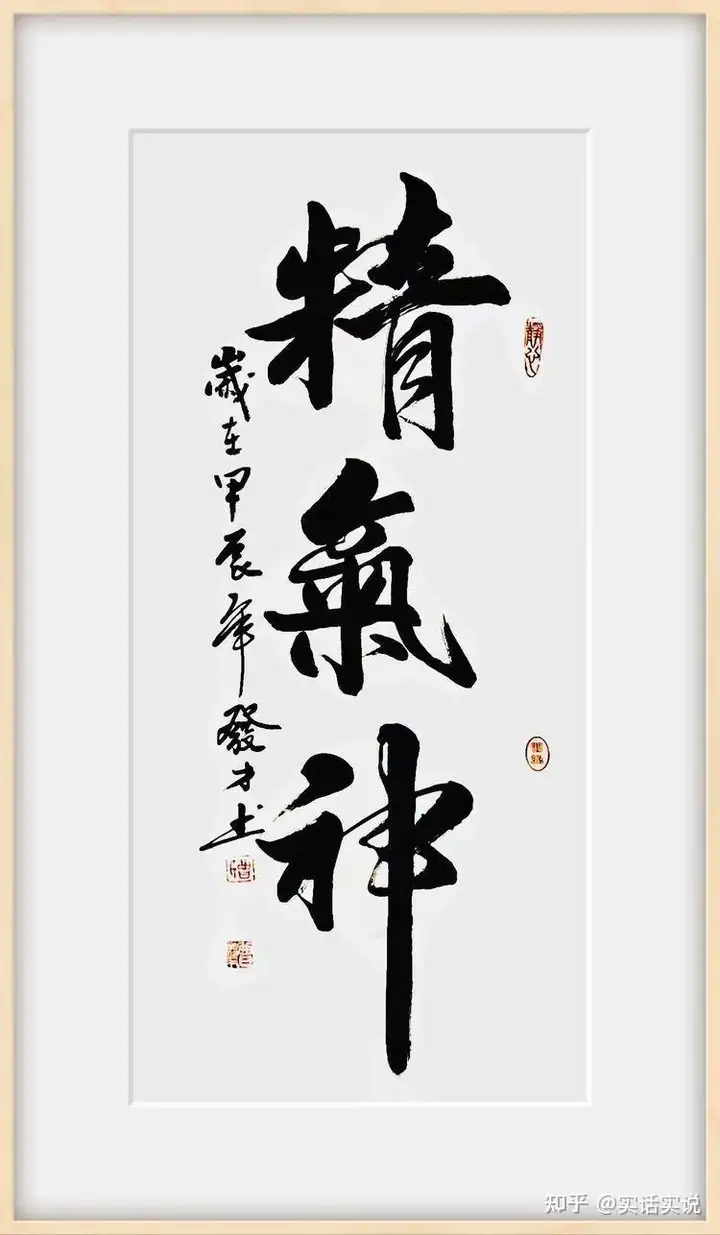 精氣神
歲在甲辰年發才书
知乎 @实话实说